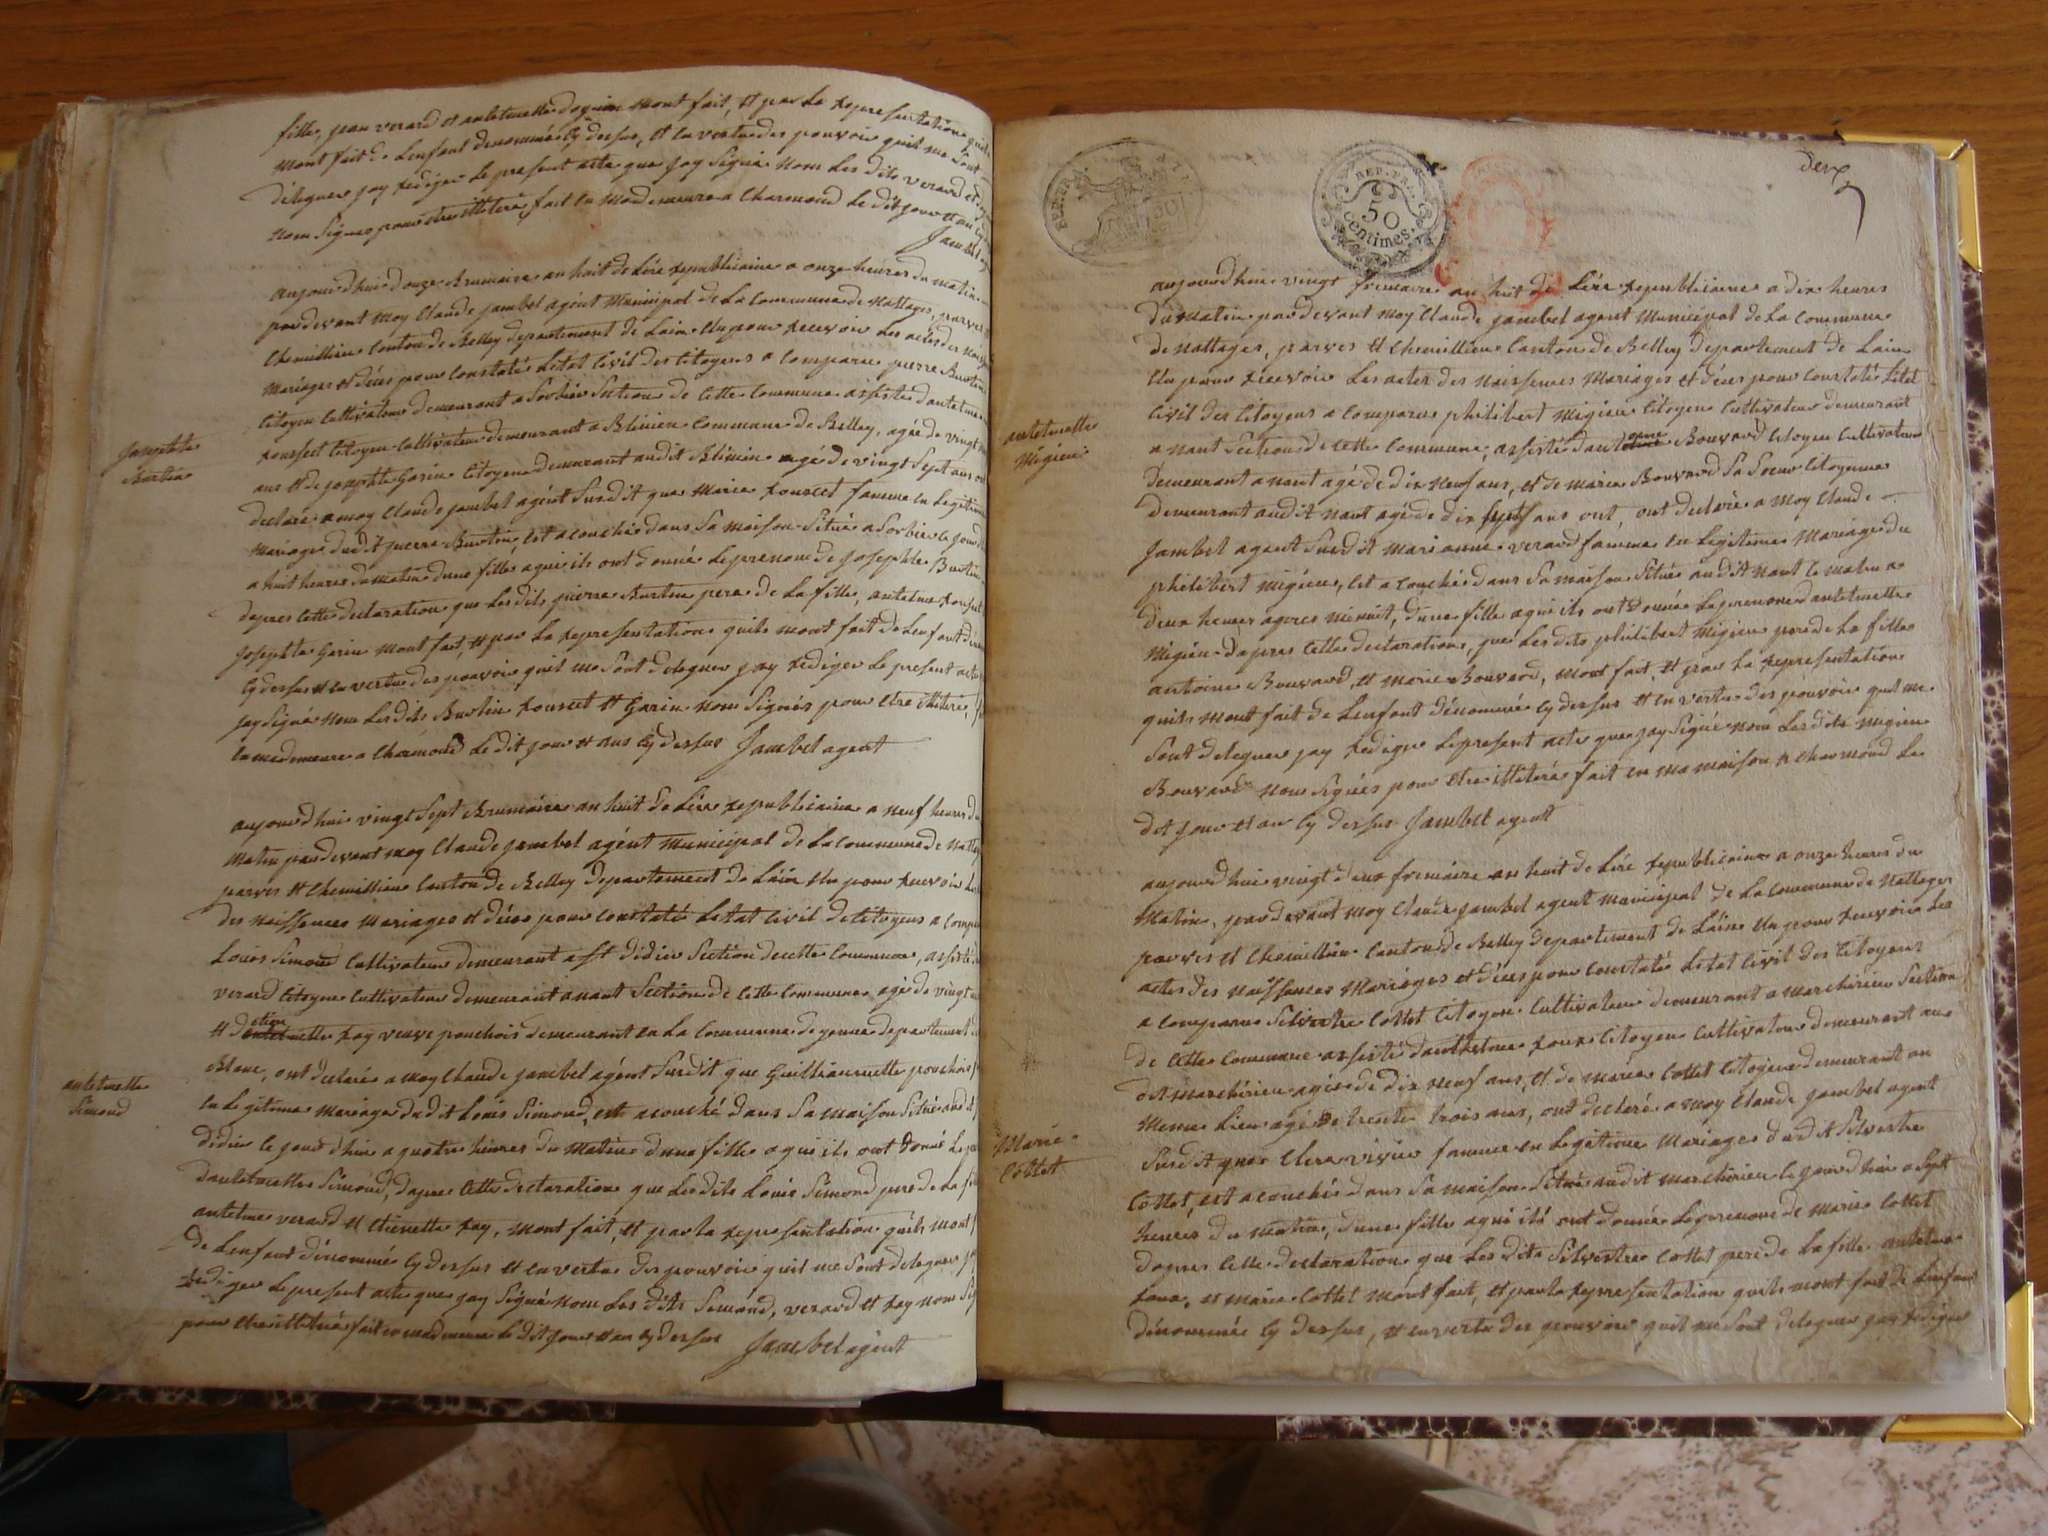 fille, jean verard et antelmette mont fait, et par la representation quils
mont fait de Lenfant denommée cy dessus, et en vertu des pouvoir quil me sont
deleguer jay rediger le present acte que jay signé non les dits verard et
nom signes pour etre illiteré fait en ma demeure a Charmoud le dit jour et an cy
Jambel
aujourdhui douze Brumaire an huit de Lére republicaine a onze heures du matin
pardevant moy Claude jambel agént Municipal de La Commune de Nattages, parves
Chemillieu Canton de Belley departement de Lain Elu pour recevoir Les actes des
Mariages et déces pour constaté Létat Civil des Citoyens a comparu pierre Burtin
Citoyen Cultivateur demeurant a Sorbier Section de Cette Commune assisté dantelme
rousset Citoyen Cultivateur demeurant a Blinien Commune de Belley, agée de vingt
ans et de josephte Garin Citoyene demeurant audit Blinien agé de vingt sept ans ont
declaré a moy Claude jambel agént Susdit que Marie rousset famme en Legitime
Mariage dudit pierre Burtin, est acouchée dans sa maison Située a Sorbier ce jour
a huit heures du matin dune fille a qui ils ont donné le prenom de josephte Burtin
dapres Cette declaration que Lesdits pierre Burtin pere de La fille, antelme rousset
josephte Garin mont fait, et par La representation quils mont fait de Lenfant
cy dessus et en vertu des pouvoir quil me sont deleguer jay rediger Le present acte
jay signé nom Les dits Burtin rousset et Garin nom signés pour etre illiteré,
en ma demeure a Charmoud le dit jour et ans cy dessus Jambel agent
josephte
Burtin
aujourdhui vingt sept Brumaire an huit de Lére republicaine a neuf heures du
Matin pardevant moy Claude jambel agént Municipal de La Commune de Nattages
parves et Chemillieu Canton de Belley departement de Lain Elu pour recevoir Les
des naissances Mariages et déces pour constaté Letat Civil de Citoyens a
Louis Simond Cultivateur demeurant a St didier Section de cette Commune, assisté
verard Citoyen Cultivateur demeurant a nant Section de Cette Commune agé de vingt
et detiennette Ray veuve ponchois demeurant en La Commune de yenne departement
Blanc, ont declaré a moy Claude jambel agént Susdit que Guillianmette ponchois
en Legitime Mariage dudit Louis Simond, est acouché dans sa maison Située audit
didier ce jourdhui a quatre heures du Matin dune fille a qui ils ont donné Le
dantelmette Simond, dapres Cette declaration que Les dits Louis Simond pere de La
antelme verard et etiennette Ray, mont fait, et par la representation quils mont
de Lenfant dénommé cy dessus et en vertu des pouvoir quil me sont deleguer
rediger Le present acte que jay signé nom Les dits Simond, verard et Ray nom
pour etre illiteré fait en ma demeure le dit jour et an cy dessus Jambel agént
antelmette
Simond
deux
REP. FRA.
50
centimes.
aujourdhui vingt frimaire an huit de Lére republicaine a dix heures
du Matin pardevant moy Claude jambel agent Municipal de La Commune
de Nattages, parves et Chemillieu Canton de Belley departement de Lain
Elu pour recevoir Les actes des Naissences Mariages et déces pour constaté Létat
Civil des Citoyens a comparu philibert Migieu Citoyen Cultivateur demeurant
a nant Section de cette Commune, assisté dantoine Bouvard Citoyen Cultivateur
demeurant a nant agé de dix neuf ans, et de marie Bouvard sa Soeur Citoyenne
demeurant audit nant agé de dix sept ans ont, ont declaré a moy Claude
Jambel agent Susdit Marianne verard famme en Legitime Mariage du
philibert migieu, est acouchée dans sa maison Située audit nant ce matin a
deux heures apres minuit, dune fille a qui ils ont donnée Le prenom dantelmette
Migieu dapres Cette declaration, que Les dits philibert Migieu pere de La fille
antoine Bouvard, et marie Bouvard, mont fait et par La representation
quils mont fait de Lenfant dénommé cy dessus et en vertu des pouvoir quil me
sont deleguer jay rediger Le present acte que jay signé nom Lesdits migieu
Bouvard nom signées pour etre illiteré fait en ma maison a Charmoud Le
dit jour et an cy dessus Jambel agentt
antelmette
Migieu
aujourdhui vingt deux frimaire an huit de Lére republicaine a onze heures du
Matin, pardevant moy Claude jambel agent Municipal de La Commune de Nattages
parves et Chemillieu Canton de Belley departement de Lain Elu pour recevoir Les
actes des naissences Mariages et déces pour constaté Létat Civil des Citoyens
a comparu Silvestre Cottet Citoyen Cultivateur demeurant a marchirieu Section
de Cette Commune assisté danthelme roux Citoyen Cultivateur demeurant au
dit marchirieu agée de dix neuf ans, et de marie Cottet Citoyene demeurant au
Meme Lieu agé de trente trois ans, ont declaré a moy Claude jambel agent
Susdit que Clera vivier famme en Legitime Mariage dudit Silvestre
Cottet, est acouchée dans sa maison Située audit marchirieu ce jourdhui a sept
heures du matin, dune fille a qui ils ont donnée Le prenom de Marie Cottet
dapres Cette declaration que Les dits Silvestre Cottet pere de La fille antelme
roux, et marie Cottet mont fait, et par la representation quils mont fait de Lenfant
dénommée cy dessus, et en vertu des pouvoir quil me sont deleguer jay rediger
Marie
Cottet